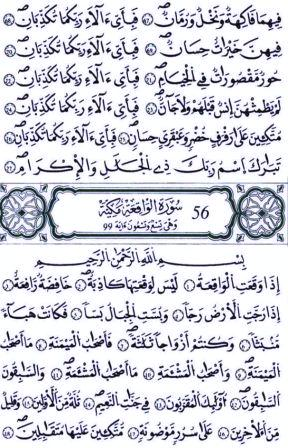 فِيهِمَا فَاكِهَةٌ وَنَخْلٌ وَرُمَّانٌ فَبِأَيِّ ءَالَآءِ رَبِّكُمَا تُكَذِّبَانِ
فِيهِنَّ خَيْرَاتٌ حِسَانٌ فَبِأَيِّ ءَالَآءِ رَبِّكُمَا تُكَذِّبَانِ
حُورٌ مَّقْصُورَاتٌ فِي الْخِيَامِ فَبِأَيِّ ءَالَآءِ رَبِّكُمَا تُكَذِّبَانِ
لَمْ يَطْمِثْهُنَّ إِنسٌ قَبْلَهُمْ وَلَا جَآنٌّ فَبِأَيِّ ءَالَآءِ رَبِّكُمَا تُكَذِّبَانِ
مُتَّكِئِينَ عَلَىٰ رَفْرَفٍ خُضْرٍ وَعَبْقَرِيٍّ حِسَانٍ فَبِأَيِّ ءَالَآءِ رَبِّكُمَا تُكَذِّبَانِ
تَبَارَكَ اسْمُ رَبِّكَ ذِي الْجَلَالِ وَالْإِكْرَامِ
56 سُورَةُ الْوَاقِعَةِ مَكِّيَّة
وَهِيَ تِسْعٌ وَتِسْعُونَ ءَايَة 99
بِسْمِ اللَّهِ الرَّحْمَٰنِ الرَّحِيمِ
إِذَا وَقَعَتِ الْوَاقِعَةُ لَيْسَ لِوَقْعَتِهَا كَاذِبَةٌ خَافِضَةٌ رَّافِعَةٌ
إِذَا رُجَّتِ الْأَرْضُ رَجًّا وَبُسَّتِ الْجِبَالُ بَسًّا فَكَانَتْ هَبَآءً
مُّنبَثًّا وَكُنتُمُ أَزْوَاجًا ثَلَاثَةً فَأَصْحَابُ الْمَيْمَنَةِ مَآ أَصْحَابُ
الْمَيْمَنَةِ وَأَصْحَابُ الْمَشْئَمَةِ مَآ أَصْحَابُ الْمَشْئَمَةِ وَالسَّابِقُونَ
السَّابِقُونَ أُولَٰئِكَ الْمُقَرَّبُونَ فِي جَنَّاتِ النَّعِيمِ ثُلَّةٌ مِّنَ الْأَوَّلِينَ وَقَلِيلٌ
مِّنَ الْآخِرِينَ عَلَىٰ سُرُرٍ مَّوْضُونَةٍ مُّتَّكِئِينَ عَلَيْهَا مُتَقَابِلِينَ